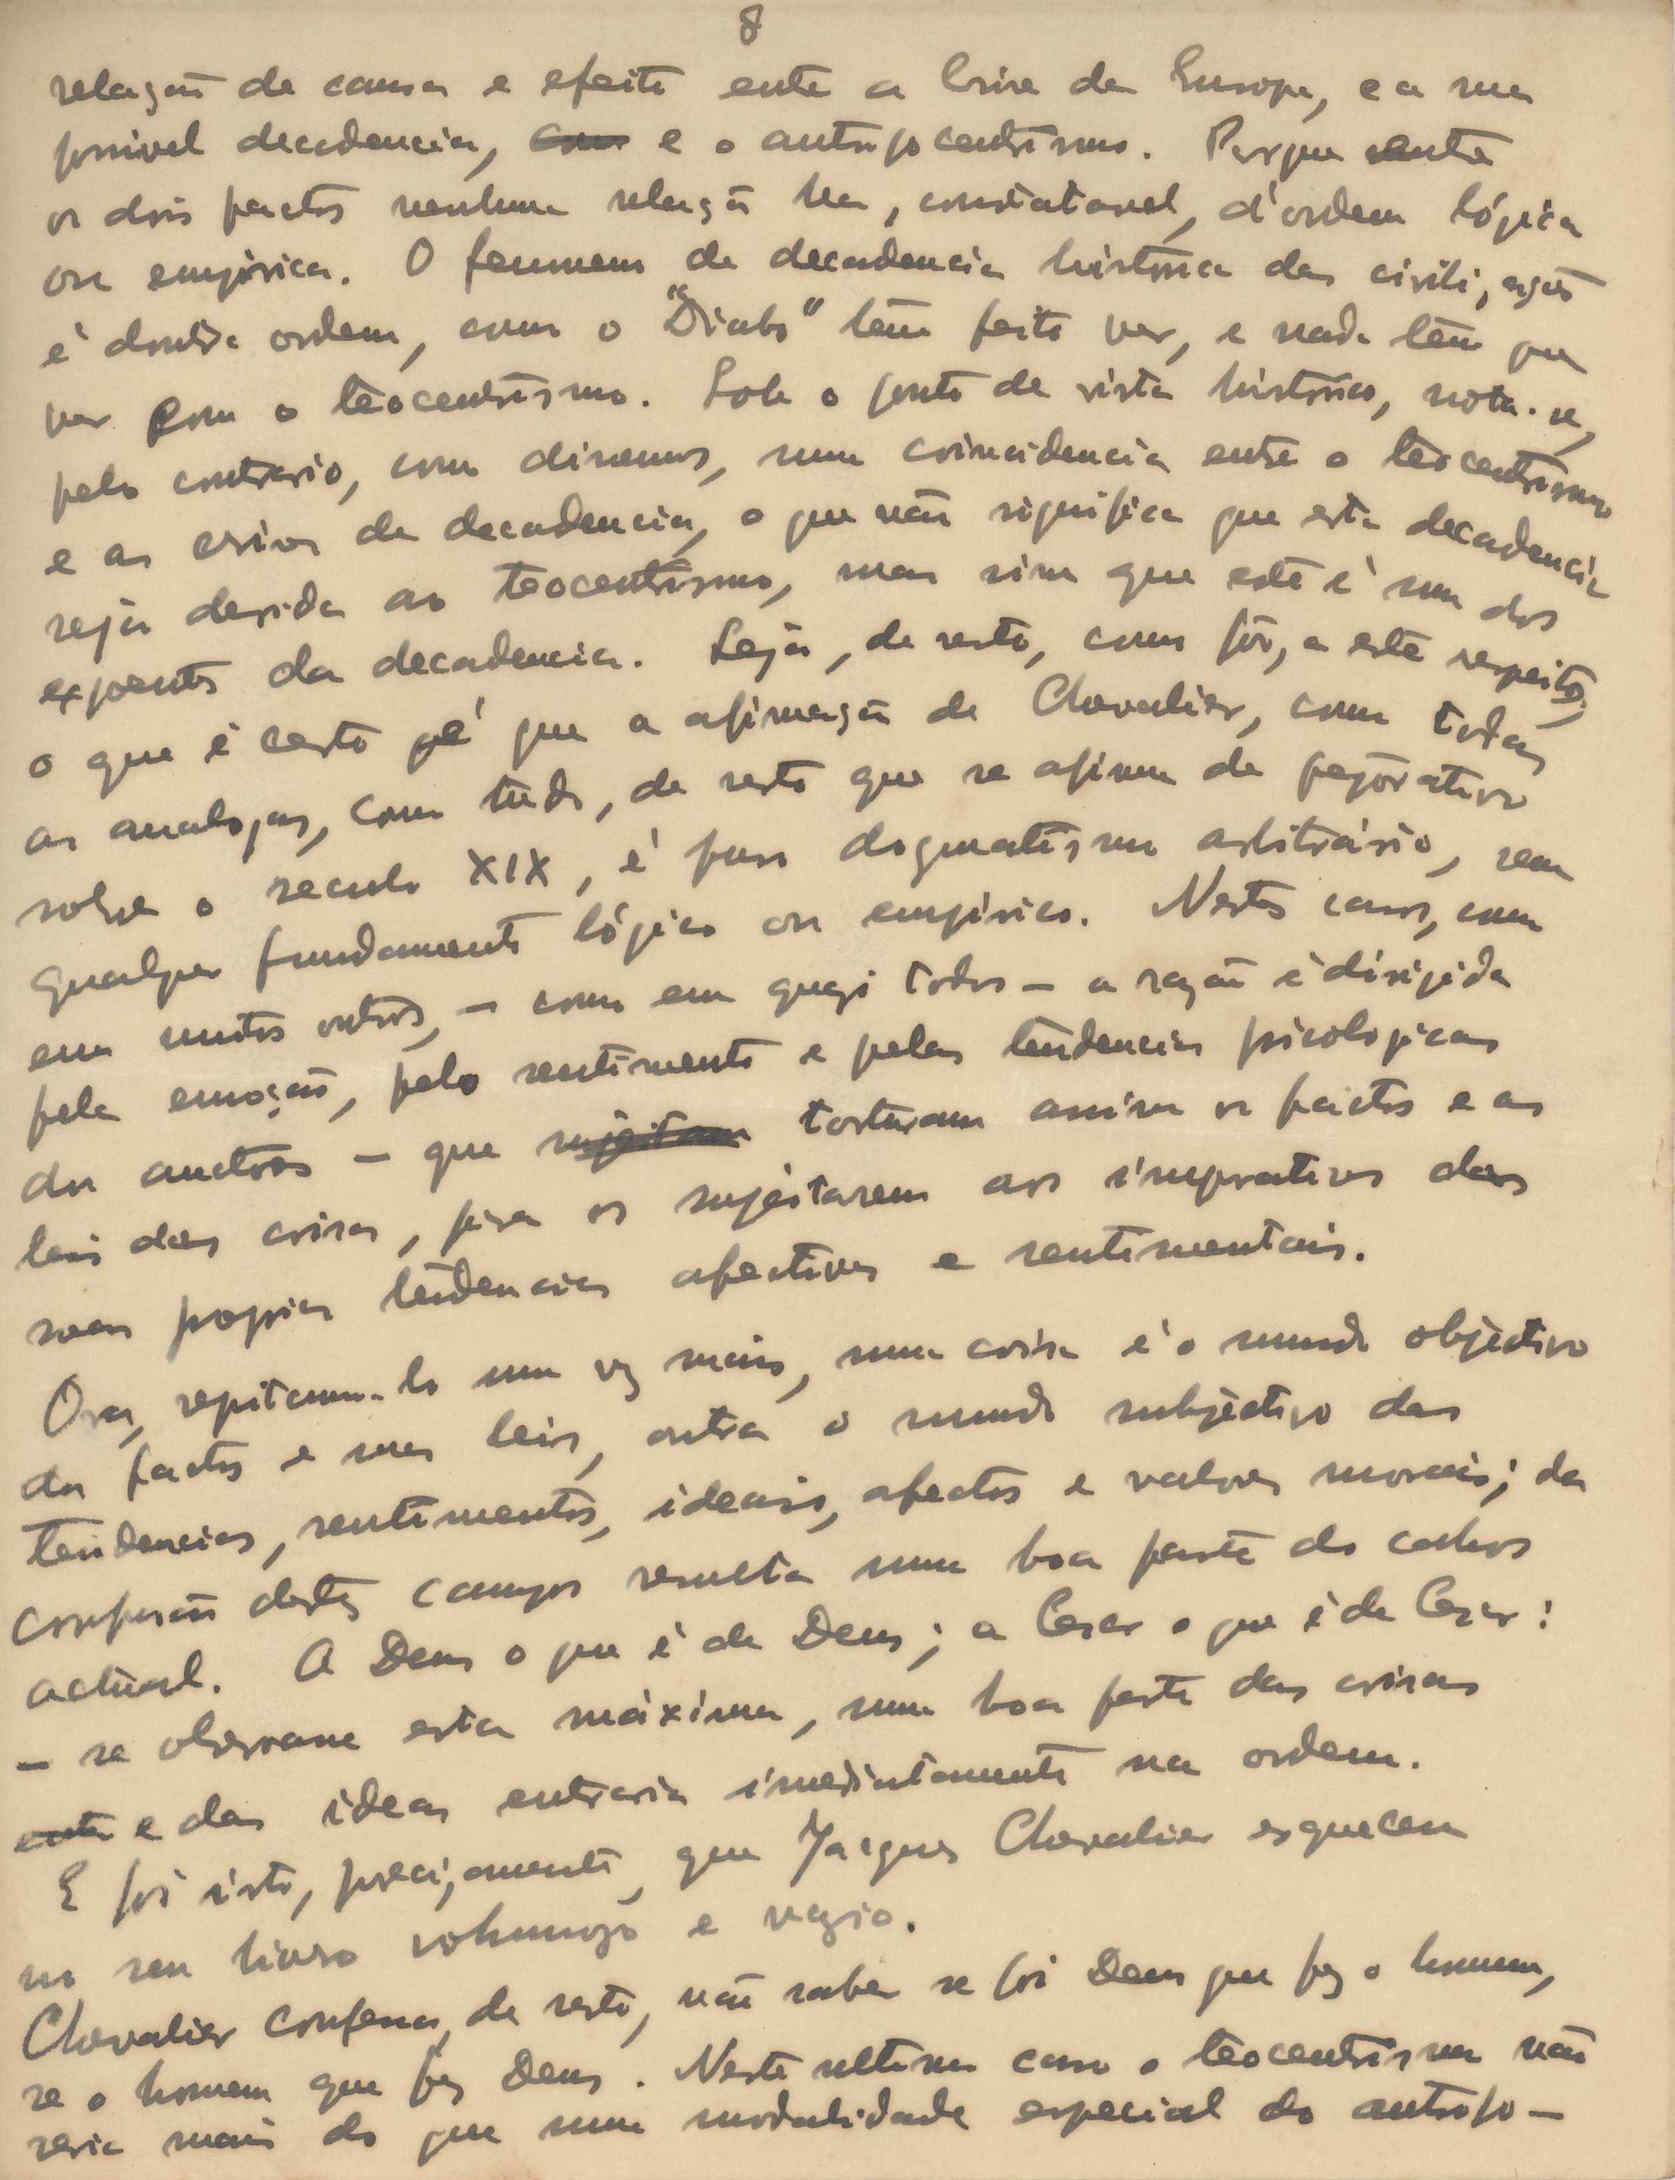 8
relação de causa e efeito entre a Crise da Europa, e a sua
possivel decadencia, com e o antropocentrismo. Porque entre
os dois factos nenhuma relação ha, constatavel, d'ordem lógica
ou empirica. O fenomeno da decadencia histórica das civilizações
é doutra ordem, como o "Diabo" tem feito ver, e nada tem que
ver com o teocentrismo. Sob o ponto de vista histórico, nota-se,
pelo contrario, como dissemos, uma coincidencia entre o teocentrismo
e as crises de decadencia, o que não significa que esta decadencia
seja devida ao teocentrismo, mas sim que este é um dos
expoentes da decadencia. Seja, de resto, como fôr, a este respeito,
o que é certo é que a afirmação de Chevalier, como todas
as analogas, como tudo, de resto que se afirma de pejorativo
sobre o seculo XIX, é puro dogmatismo arbitrário, sem
qualquer fundamento lógico ou empirico. Nestes casos, como
em muitos outros, – como em quasi todos – a razão é dirigida
pela emoção, pelo sentimento e pelas tendencias psicologicas
dos auctores – que sujeitam torturam assim os factos e as
leis das coisas, para os sujeitarem aos imperativos das
suas proprias tendencias afectivas e sentimentais.
Ora, repitamo-lo uma vez mais, uma coisa é o mundo objectivo
dos factos e suas leis, outra o mundo subjectivo das
tendencias, sentimentos, ideais, afectos e valores morais; da
confusão destes campos resulta uma boa parte do cahos
actual. A Deus o que é de Deus; a Cesar o que é de Cesar:
– se observasse esta máxima, uma boa parte das coisas
entre e das ideas entraria imediatamente na ordem.
E foi isto, precisamente, que Jacques Chevalier esqueceu
no seu livro volumoso e vazio.
Chevalier confessa, de resto, não saber se foi Deus que fez o homem,
se o homem que fez Deus. Neste ultimo caso o teocentrismo não
seria mais do que uma modalidade especial do antropo–